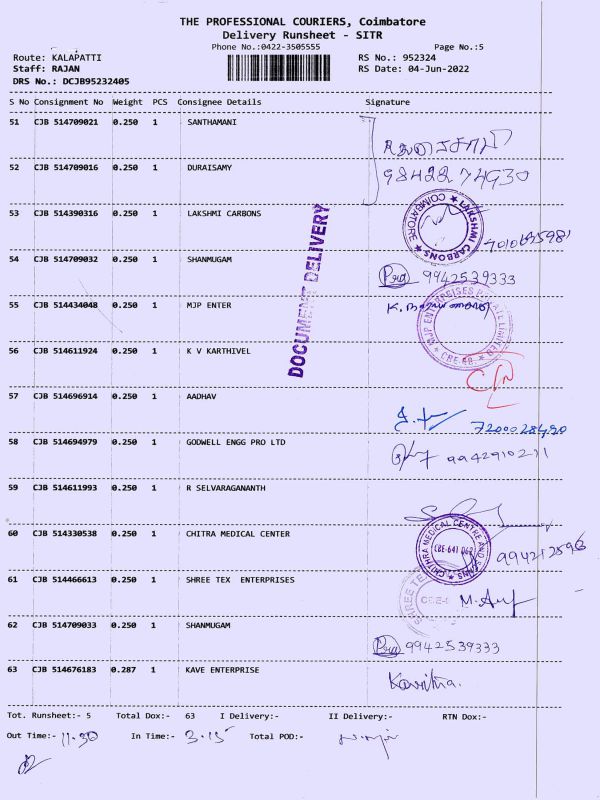 THE PROFESSIONAL COURIERS, Coimbatore
Delivery Runsheet - SITR
Phone No.:0422-3505555 Page No.:5
Route: KALAPATTI RS No.: 952324
Staff: RAJAN RS Date: 04-Jun-2022
DRS No.: DCJB95232405
S No Consignment No Weight PCS Consignee Details Signature
51 CJB 514709021 0.250 1 SANTHAMANI
52 CJB 514709016 0.250 1 DURAISAMY
98422 74930
53 CJB 514390316 0.250 1 LAKSHMI CARBONS
LAKSHMI CARBONS ★ COIMBATORE ★
DOCUMENT DELIVERY
54 CJB 514709032 0.250 1 SHANMUGAM
9942539333
55 CJB 514434048 0.250 1 MJP ENTER
MJP ENTERPRISES PRIVATE LIMITED
56 CJB 514611924 0.250 1 K V KARTHIVEL
57 CJB 514696914 0.250 1 AADHAV
58 CJB 514694979 0.250 1 GODWELL ENGG PRO LTD
9942910211
59 CJB 514611993 0.250 1 R SELVARAGANANTH
60 CJB 514330538 0.250 1 CHITRA MEDICAL CENTER
61 CJB 514466613 0.250 1 SHREE TEX ENTERPRISES
62 CJB 514709033 0.250 1 SHANMUGAM
9942539333
63 CJB 514676183 0.287 1 KAVE ENTERPRISE
Kavitha.
Tot. Runsheet:- 5 Total Dox:- 63 I Delivery:- II Delivery:- RTN Dox:-
Out Time:- 11.30 In Time:- 3.15 Total POD:-